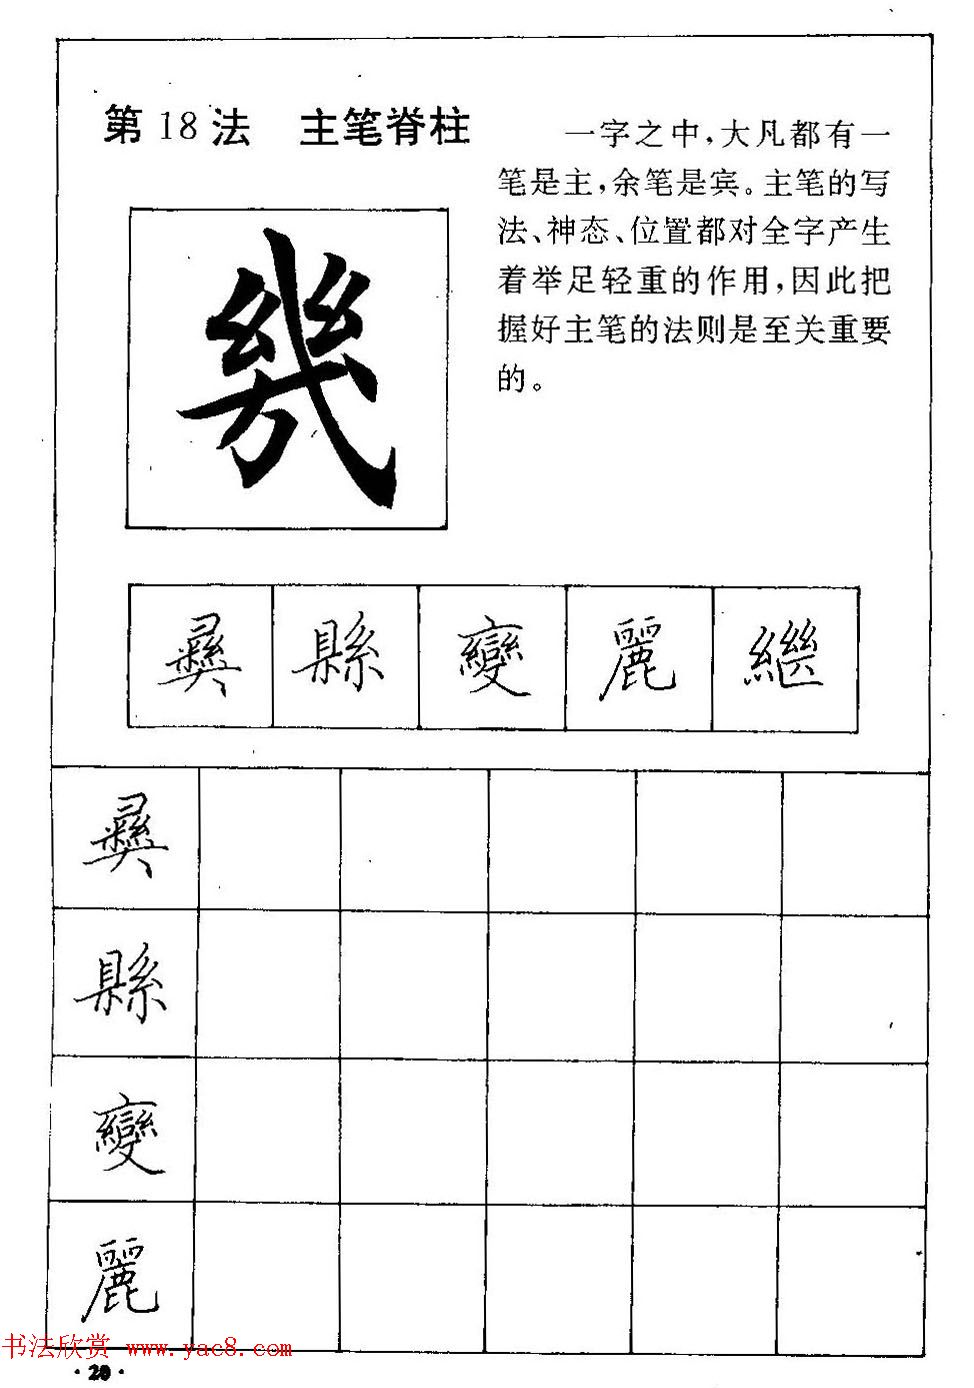 第18法 主笔脊柱
一字之中，大凡都有一
笔是主，余笔是宾。主笔的写
法、神态、位置都对全字产生
着举足轻重的作用，因此把
握好主笔的法则是至关重要
的。
幾
彝 縣 變 麗 繼
彝
縣
變
麗
书法欣赏 www.yac8.com
·20·